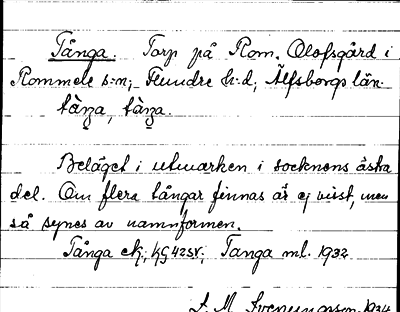 Tånga. Torp på Rom. Olofsgård i
Rommele s:n; Flundre h:d, Älfsborgs län.
tàŋa, tàŋa.
Beläget i utmarken i socknens östra
del. Om flera tångar finnas är ej visst, men
så synes av namnformen.
Tånga ek, KG 42 SV; Tånga ml. 1932
1934